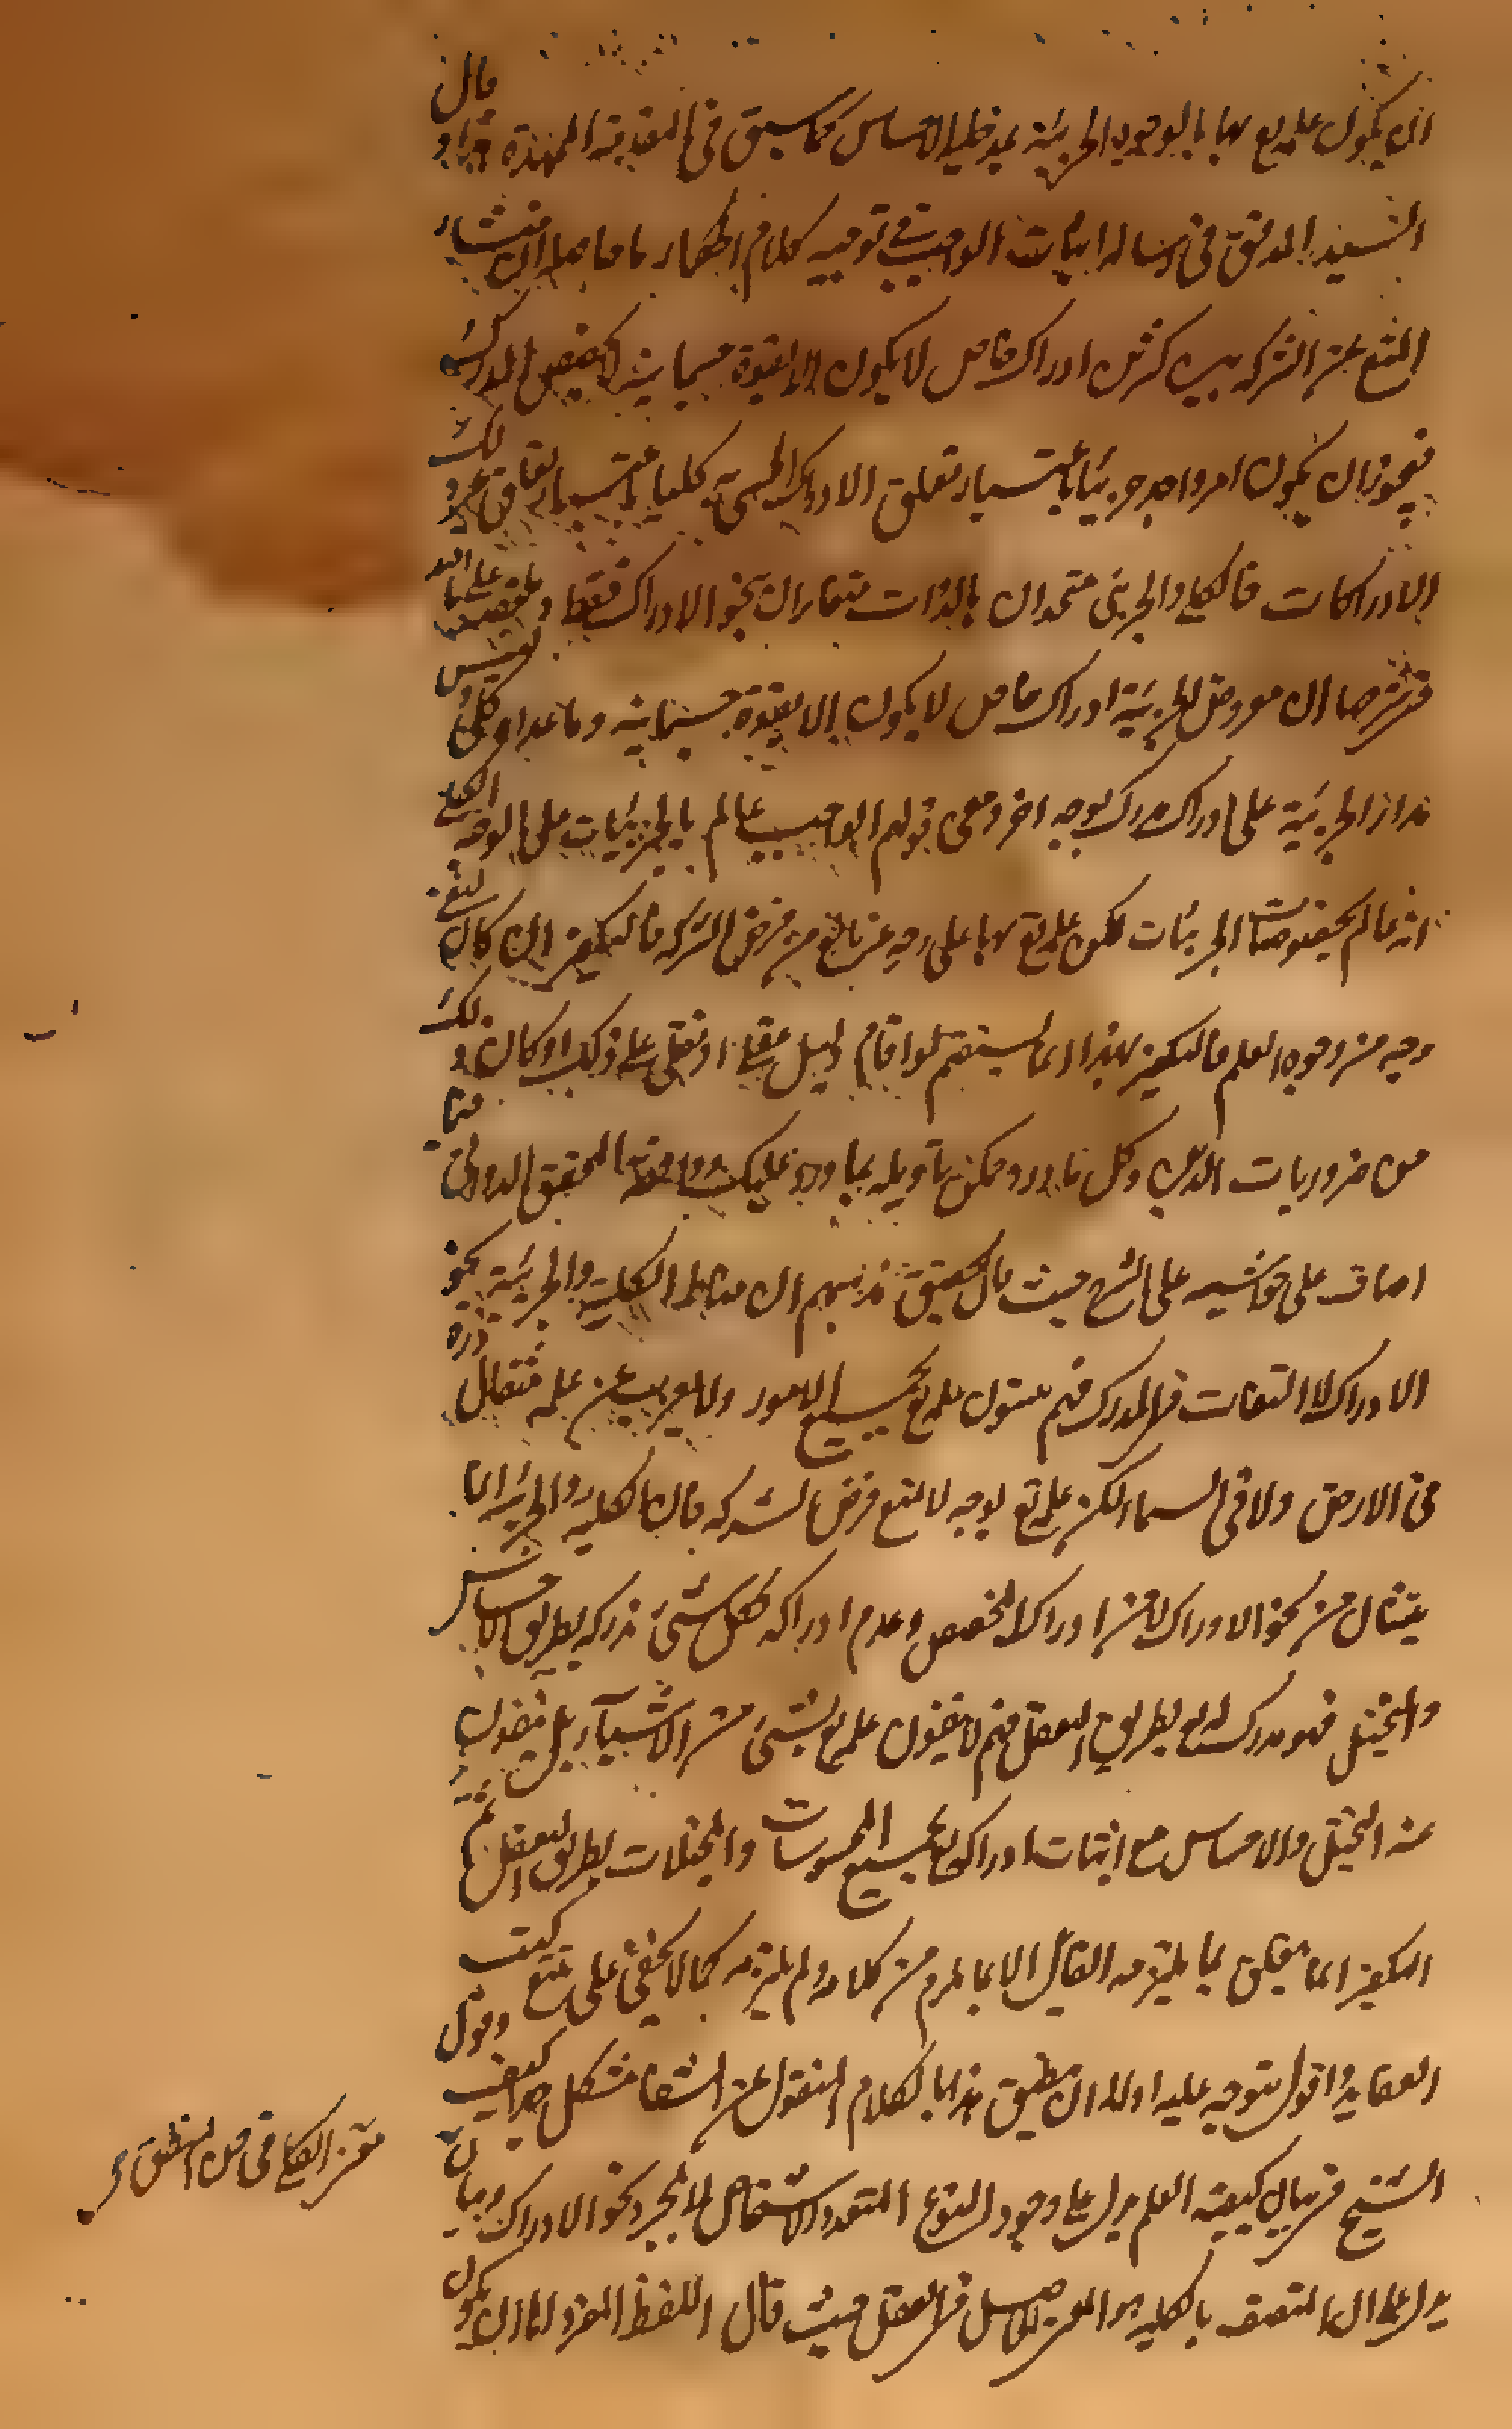 ان يكون علمه تع بها بالوجوه الجزئية بمدخلية الاحساس كما سبق في المقدمة الممهدة قال
السيد المدقق في رسالة اثبات الواجب في توجيه كلام الحكماء ما حاصله ان منشاء
المنع عن الشركة بين كثيرين ادراك خاص لا يكون الا بقوة جسمانية لا خصوص المدرك
فيجوز ان يكون امر واحد جزئيا باعتبار تعلق الادراك الحسي به كليا باعتبار تعلق غير ذلك
الادراكات فالكلي والجزئي متحدان بالذات متغايران بنحو الادراك فقط
ان معروض الجزئية ادراك خاص لا يكون الا بقوة جسمانية وما عداه كلي وليس
مدار الجزئية على ادراك مدرك بوجه اخر ومعنى قولهم الواجب عالم بالجزئيات على الوجه الكلي
انه عالم بخصوصيات الجزئيات لكن علمه تع بها على وجه غير مانع من فرض الشركة فالتكفير ان كان لنفي
وجه من وجوه العلم فالتكفير بهذا انما يستقيم لو قام دليل عقلي او نقلي على ذلك او كان ذلك
من ضروريات الدين وكل ما ورد ممكن تاويله بما ورد عليك ووافقه المحقق الدواني
على حاشيته على الشرح حيث قال تحقيق مذهبهم ان مناط الكلية والجزئية نحو
الادراك لا التفاوت في المدرك فهم يثبتون علمه تع بجميع الامور ولا يعزب عن علمه مثقال ذرة
في الارض ولا في السماء لكن علمه تع بوجه لا يمنع فرض الشركة فان الكلية والجزئية انما
ينشان من نحو الادراك لا من ادراك المخصص وعدم ادراكه فكل شيء ندركه بطريق الاحساس
والتخيل فهو مدرك له تع بطريق التعقل فهم لا ينفون علمه تع بشيء من الاشياء بل ينفون
عنه التخيل والاحساس مع اثبات ادراكه تع بجميع المحسوسات والمتخيلات بطريق التعقل ثم
التكفير انما يتعلق بما يلتزمه القائل لا بما يلزم من كلامه ولم يلتزمه كما لا يخفى على متتبع كتب
العقايد واقول يتوجه عليه اولا ان تطبيق هذا بالكلام المنقول عن الشفا مشكل جدا كيف وقول
الشيخ في بيان كيفية العلم يدل على وجود النوع المتعدد الاشخاص لا بمجرد نحو الادراك وبيان
معنى الكلي في فن المنطق
يدل على ان المتصف بالكلية هو المعنى الحاصل في العقل حيث قال اللفظ المفرد اما ان يكون